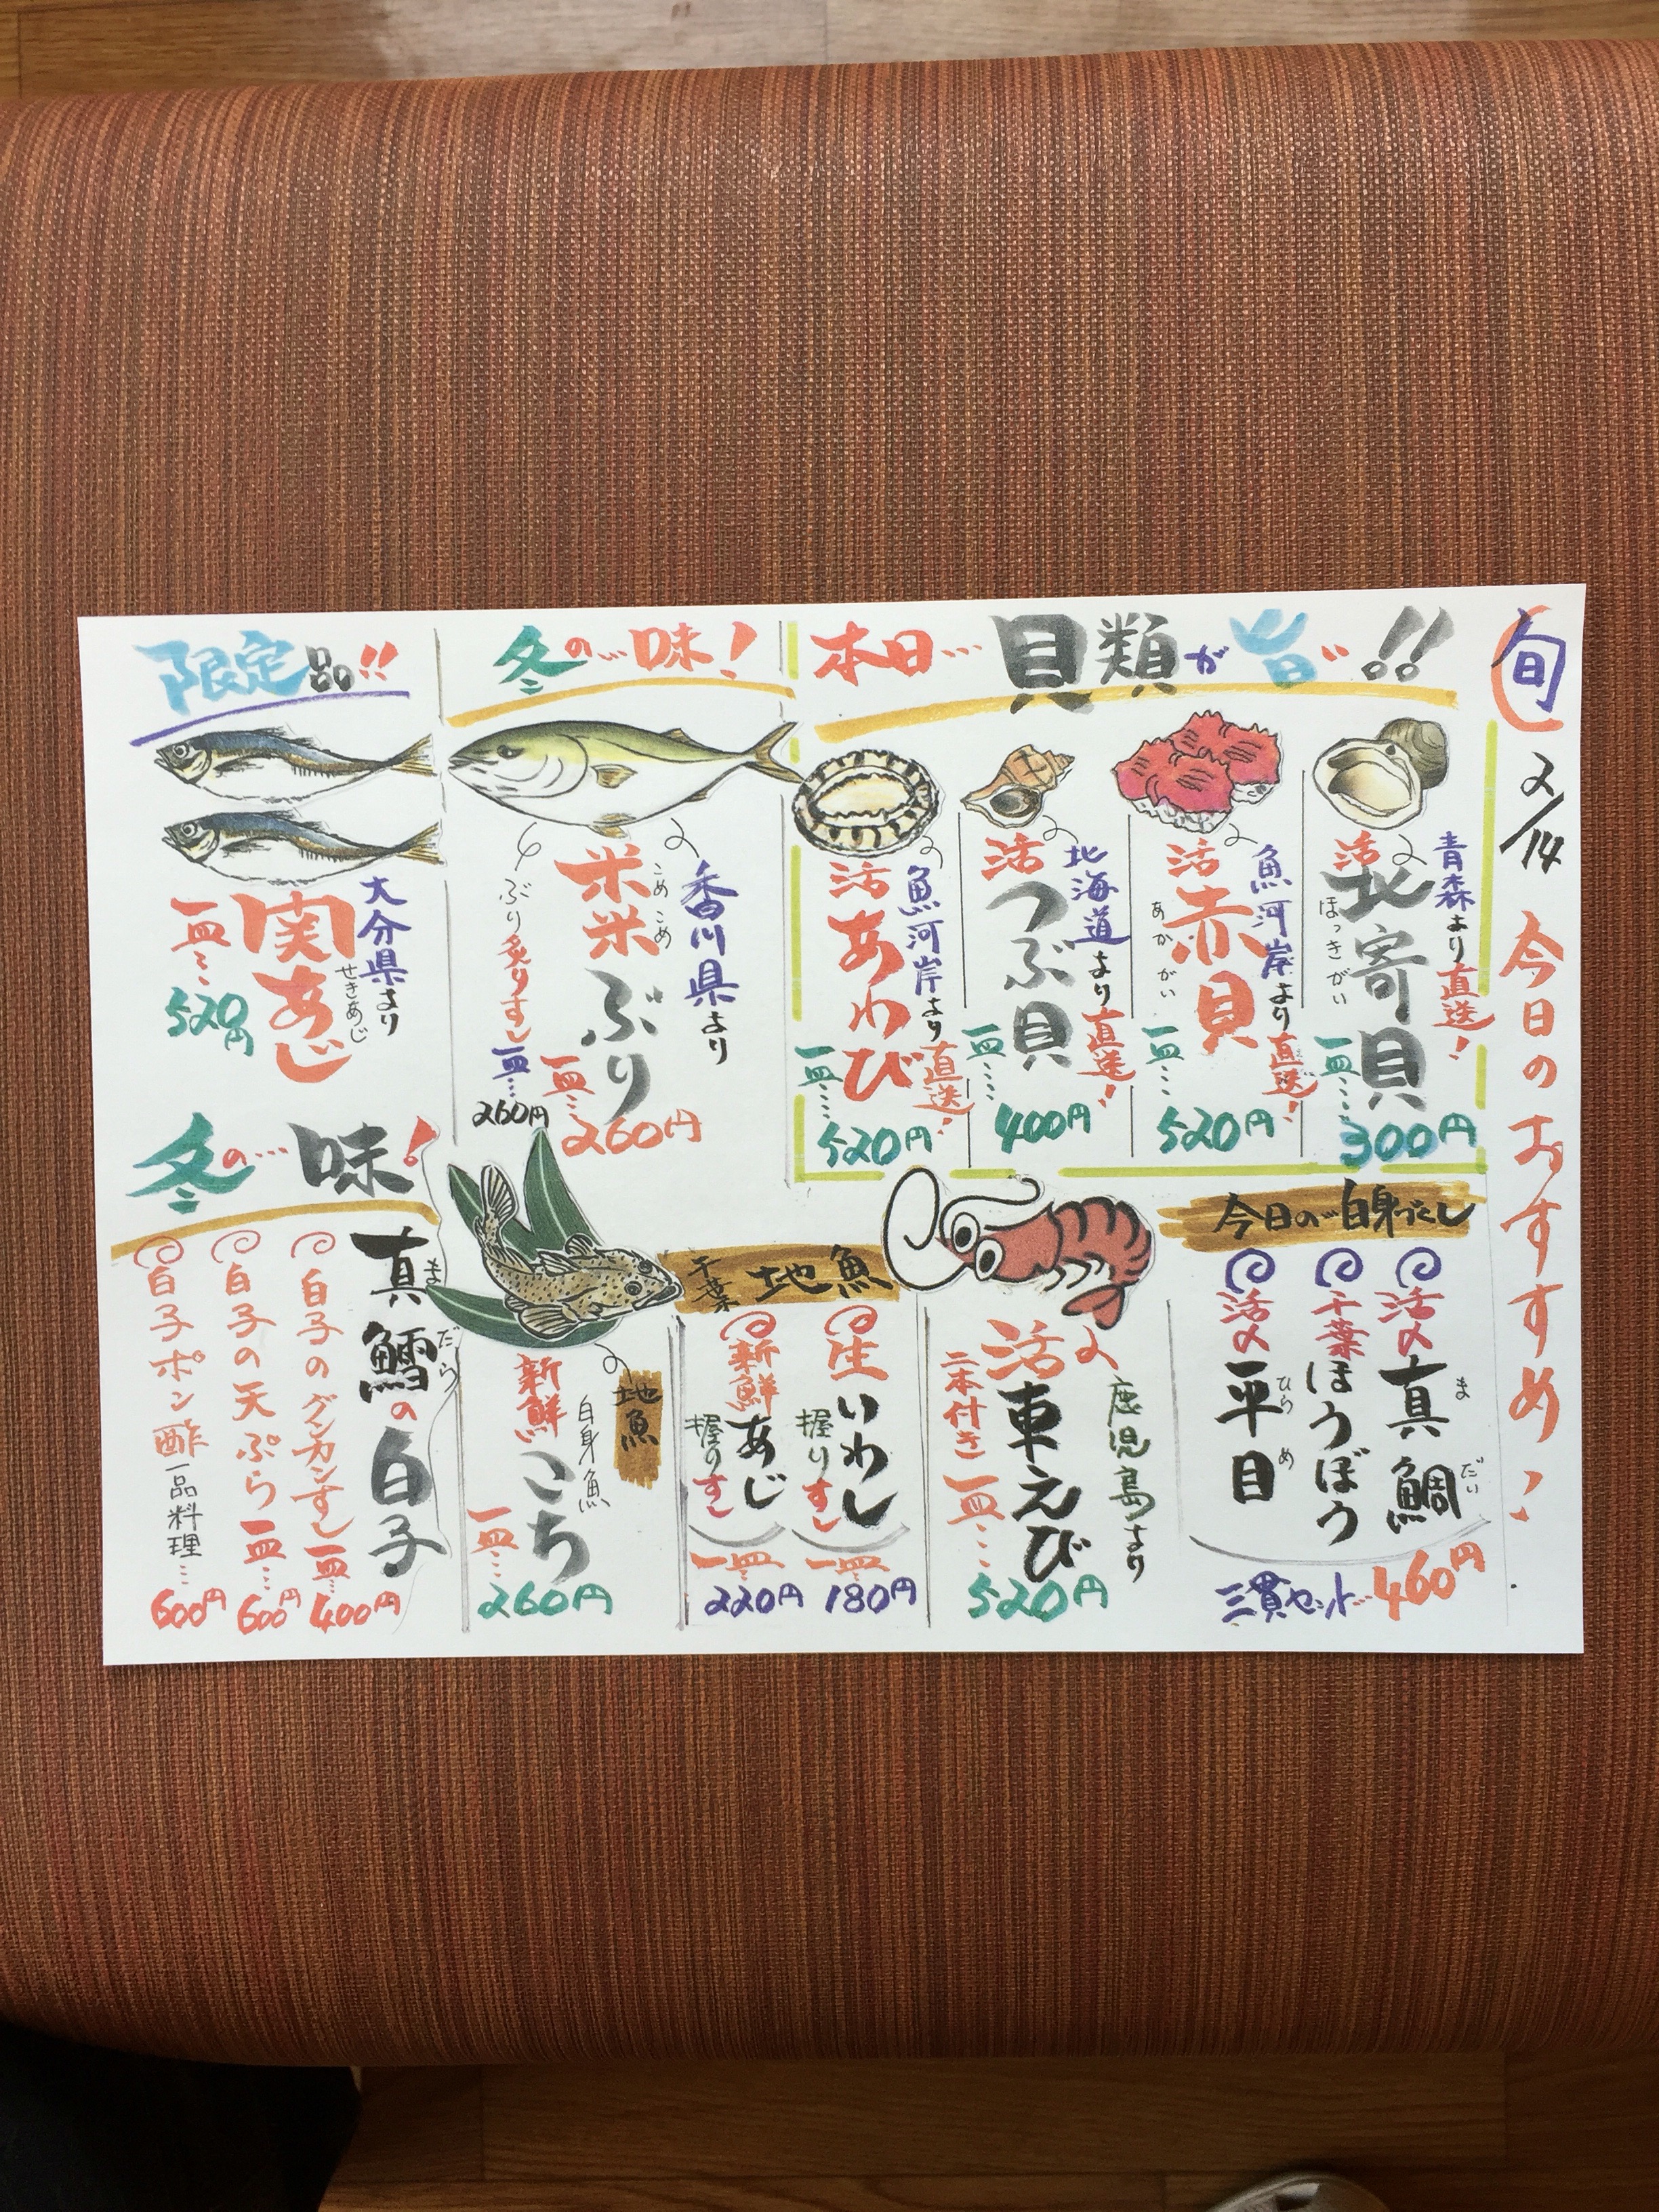 旬
2/14
今日のおすすめ!
本日…貝類が旨い!!
青森より直送!
活北寄貝
ほっきがい
一皿…300円
魚河岸より直送!
活赤貝
あかがい
一皿…520円
北海道より直送!
活つぶ貝
一皿…400円
魚河岸より直送!
活あわび
一皿…520円
冬の…味!
香川県より
米米ぶり
こめこめ
一皿…260円
ぶり炙りすし
一皿…260円
限定品!!
大分県より
関あじ
せきあじ
一皿…520円
今日の…白身づくし
活〆真鯛
まだい
千葉ほうぼう
活〆平目
ひらめ
三貫セット…460円
鹿児島より
活車えび
二本付き一皿…
520円
千葉地魚
生いわし
握りすし
一皿
180円
新鮮あじ
握りすし
一皿
220円
地魚
白身魚
新鮮こち
一皿…
260円
冬の…味!
真鱈の白子
まだら
白子のグンカンすし一皿…400円
白子の天ぷら一皿…600円
白子ポン酢一品料理…600円